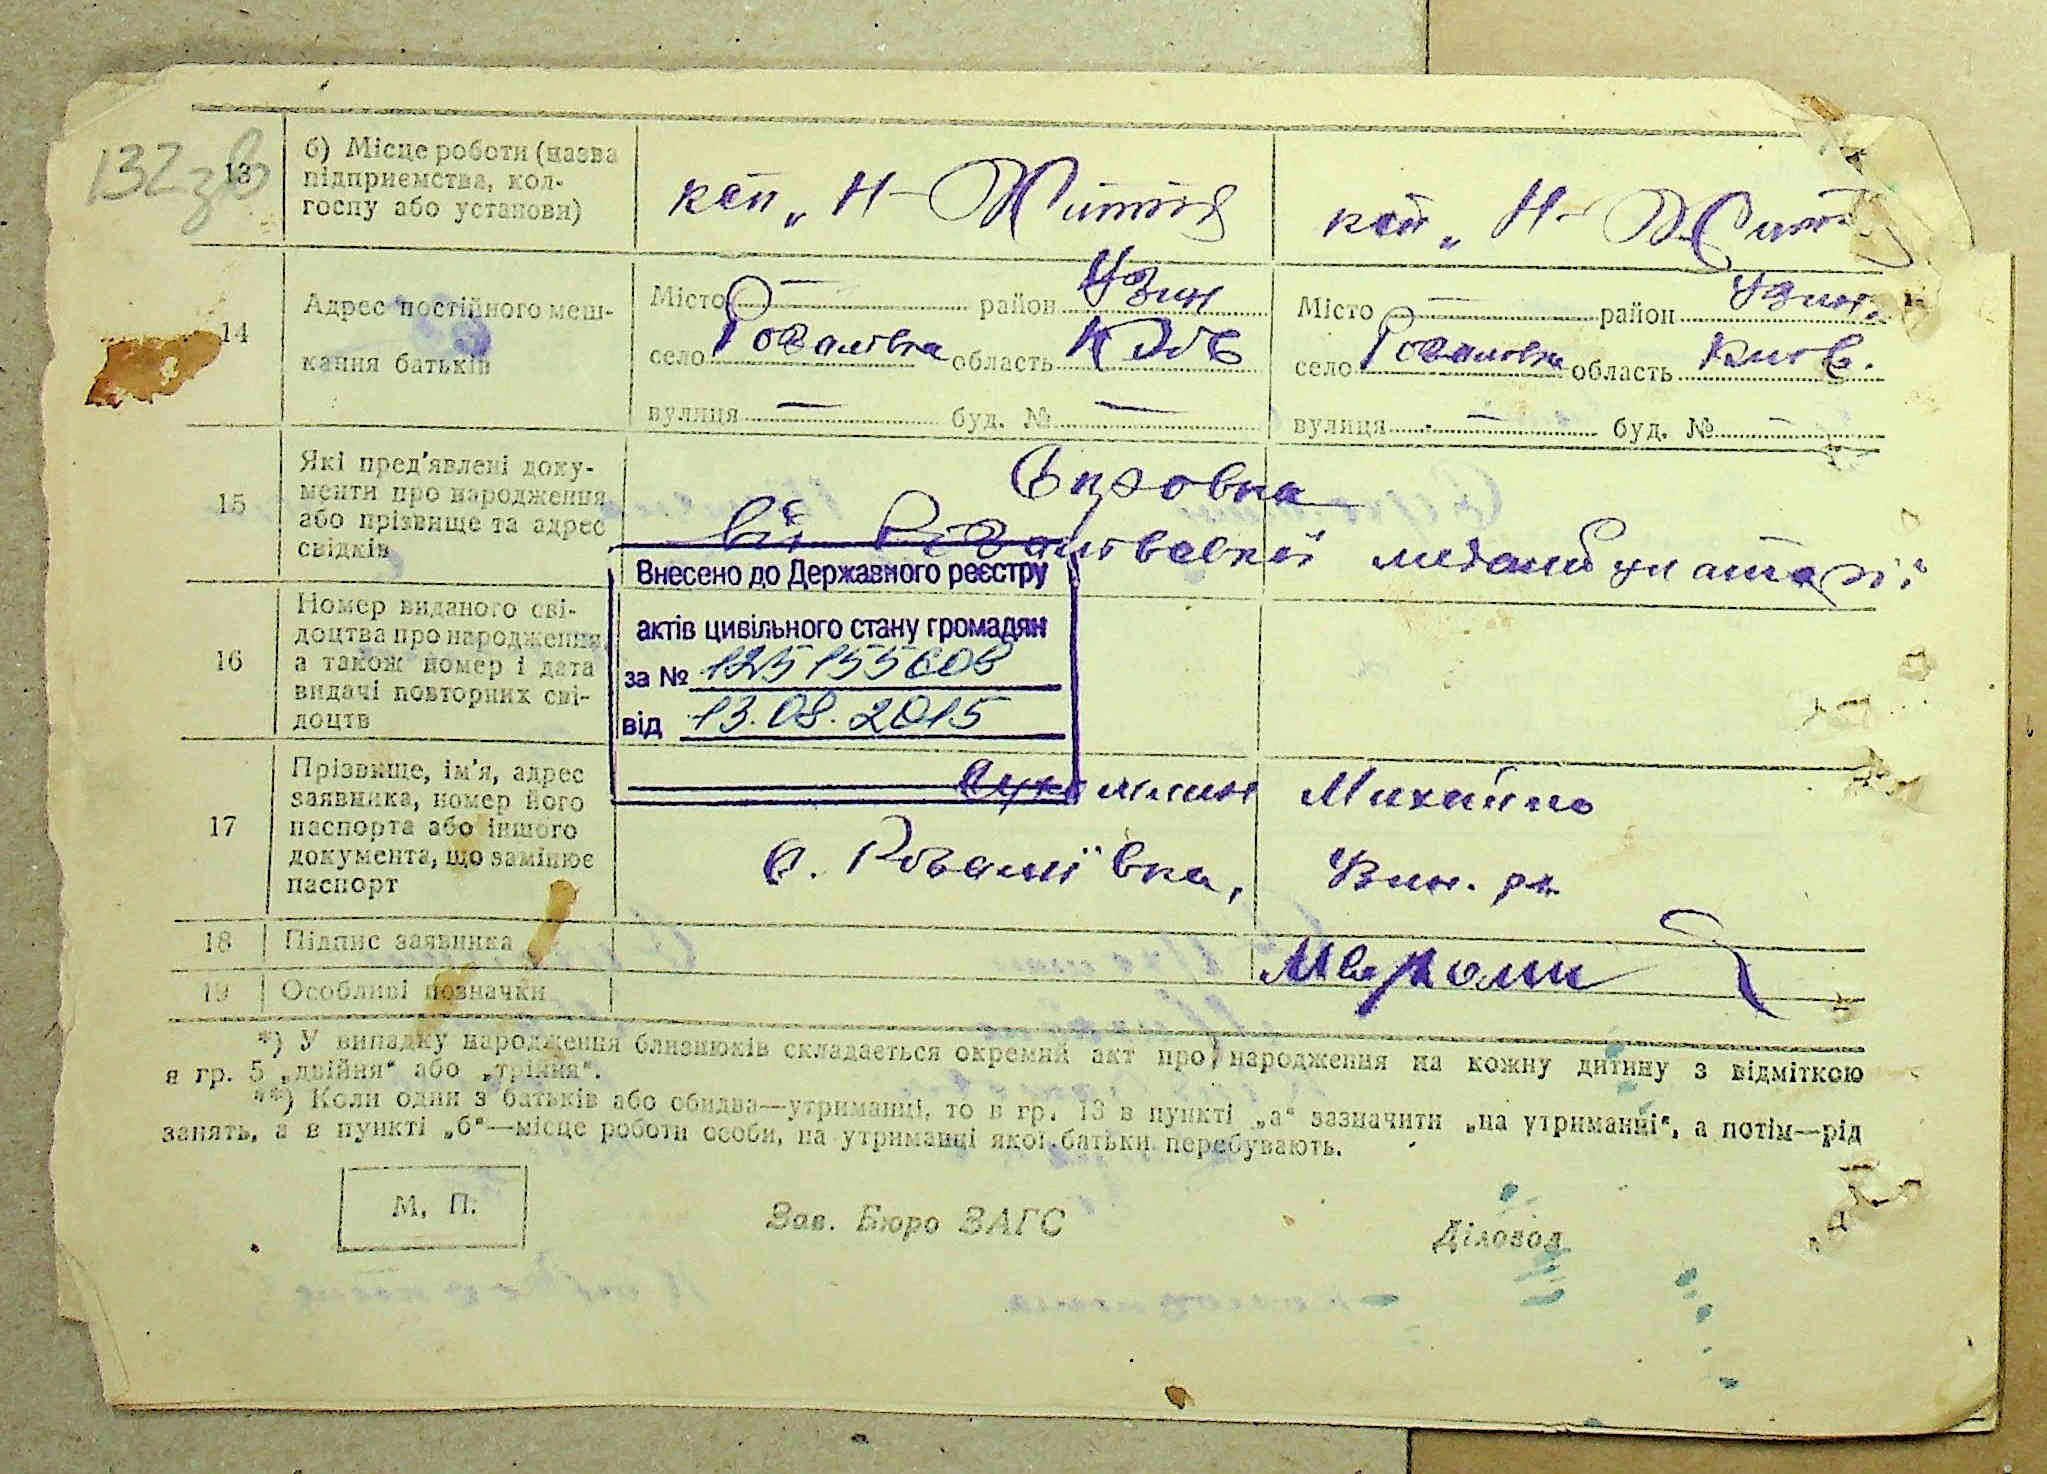 132 зв
13
б) Місце роботи (назва
підприємства, кол-
госпу або установи)
кол „ Н- Життя
кол „ Н- Житт
14
Адрес постійного меш-
кання батьків
Місто — район Узин
село Розаліївка область Київ
вулиця — буд. № —
Місто — район Узин.
село Розаліївка область Київ.
вулиця — буд. № —
15
Які пред'явлені доку-
менти про народження
або прізвище та адрес
свідків
Справка
від Розаліївської медамбулаторії
16
Номер виданого сві-
доцтва про народження,
а також номер і дата
видачі повторних сві-
доцтв
Внесено до Державного реєстру
актів цивільного стану громадян
за №
від 13.08.2015
17
Прізвище, ім'я, адрес
заявника, номер його
паспорта або іншого
документа, що замінює
паспорт
Михайло
с. Розаліївка, Узин. р-н
18
Підпис заявника
19
Особливі позначки
*) У випадку народження близнюків складається окремий акт про народження на кожну дитину з відміткою
в гр. 5 „двійня“ або „трійня“.
**) Коли один з батьків або обидва—утриманці, то в гр. 13 в пункті „а“ зазначити „на утриманні“, а потім—рід
занять, а в пункті „б“—місце роботи особи, на утриманці якої батьки перебувають.
М. П.
Зав. Бюро ЗАГС
Діловод